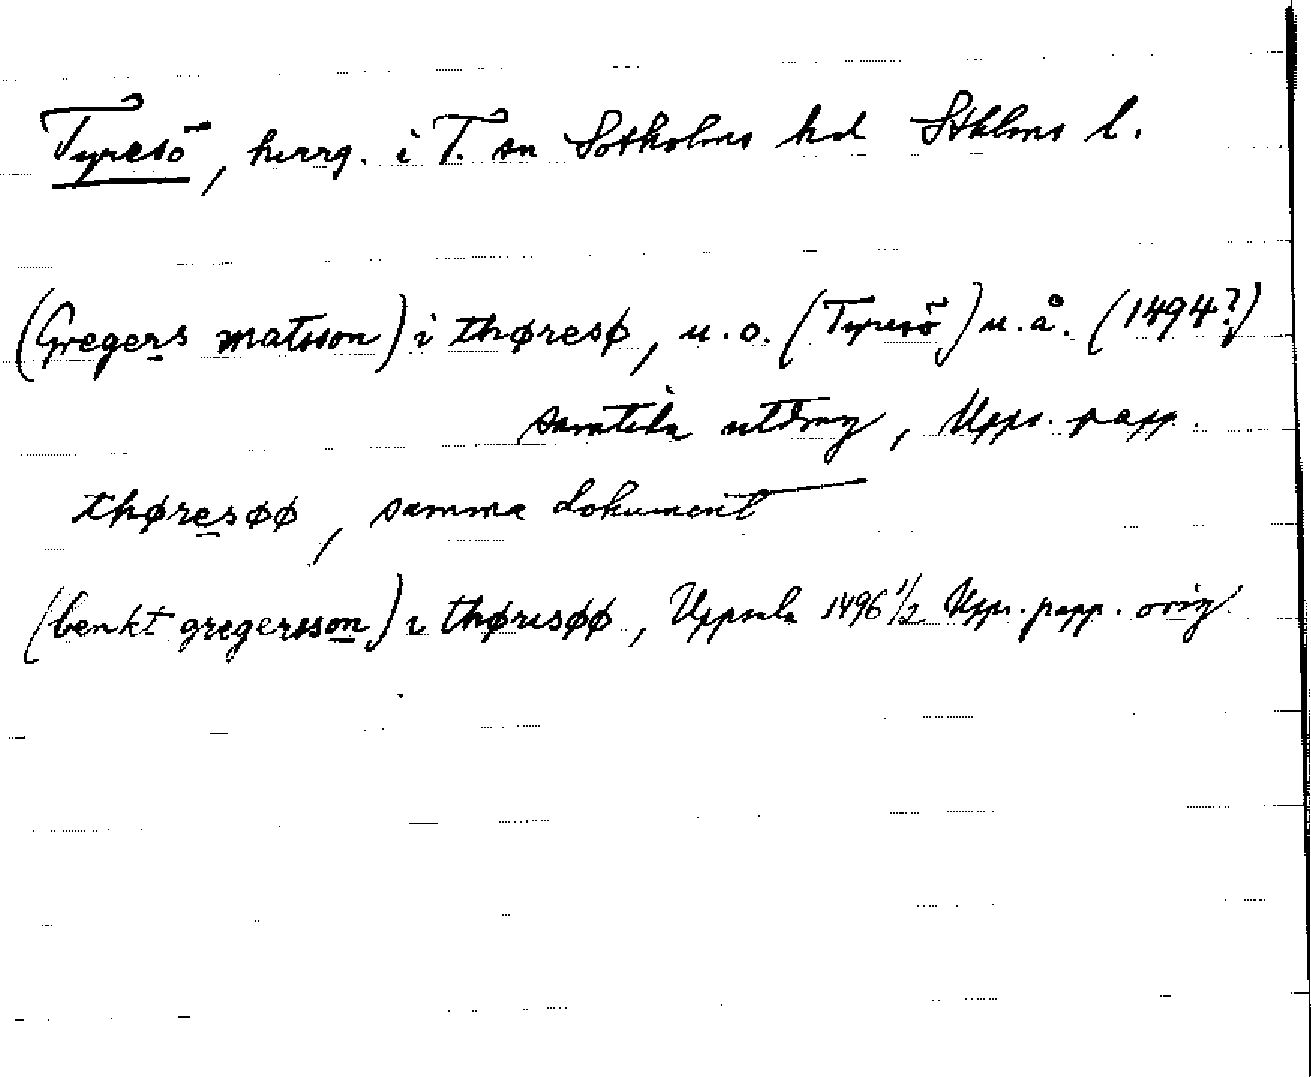 Tyresö, herrg. i T. sn Sotholms hd Sthlms l.
(Gregers matsson) i thøresø, u.o. (Tyresö) u.å. (1494?)
samtida utdrag, Upps. papp.
thøresøø, samma dokument
(benkt gregersson) i thøresøø, Uppsala 1496 1/2 Upps. papp. orig